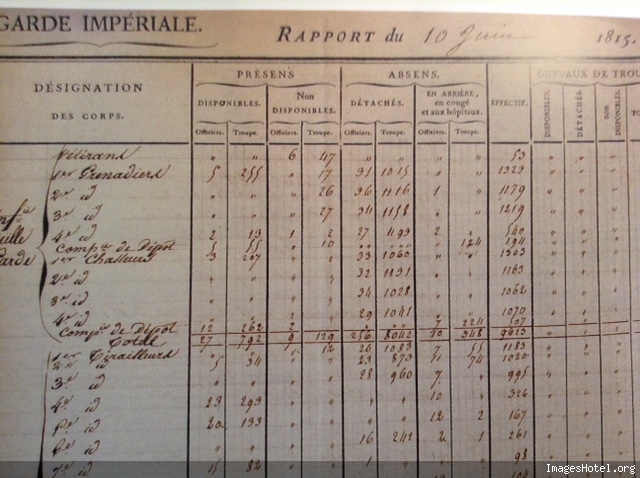 GARDE IMPÉRIALE.
RAPPORT du 10 Juin 1815.
DÉSIGNATION
DES CORPS.
PRÉSENS
ABSENS.
EFFECTIF.
CHEVAUX DE
DISPONIBLES.
Non
DISPONIBLES.
DÉTACHÉS.
EN ARRIÈRE,
en congé
et aux hôpitaux.
DISPONIBLES.
DÉTACHÉS.
non
DISPONIBLES.
Officiers. Troupe. Officiers. Troupe. Officiers. Troupe. Officiers. Troupe.
Vétérans " " 6 47 " " " " 53
1er Grenadiers 5 255 " 17 31 1015 " " 1323
2e id " " " 26 36 1116 1 " 1179
3e id " " " 27 34 1158 " " 1219
4e id 2 13 1 2 27 493 2 " 540
Compie de Dépot 5 55 " 10 " " " 124 194
1er Chasseurs 3 207 33 1060 1303
2e id 32 1131 1163
3e id 34 1028 1062
4e id 29 1041 1070
Compie de Dépot 12 262 2 7 224 507
Total 27 792 9 129 256 8042 10 348 9613
1er Tirailleurs 12 26 1083 7 55 1183
2e id 5 34 23 873 11 74 1020
3e id 28 960 7 995
4e id 23 293 10 326
5e id 20 133 12 2 167
6e id 16 242 2 1 261
7e id 15 82 1 98
ImagesHotel.org